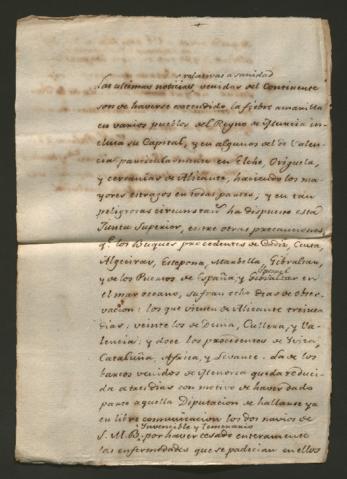 relativas a sanidad
Las ultimas noticias venidas del Continente
son de haverse extendido la fiebre amarilla
en varios pueblos del Reyno de Murcia in-
clusa su Capital, y en algunos del de Valen-
cia particularmente en Elche, Origuela,
y cercanias de Alicante, haciendo los ma-
yores estragos en todas partes, y en tan
peligrosas circunstan.s ha dispuesto esta
Junta Superior, entre otras precauciones
q.e los Buques procedentes de Cadiz, Ceuta,
Algeciras, Estepona, Marbella, Gibraltar,
y de los Puertos de España, y Gibraltar en
el mar oceano, sufran ocho dias de obser-
vacion: los que vienen de Alicante treinta
dias, veinte los de Denia, Cullera, y Va-
lencia; y doce los procedentes de Yviza,
Cataluña, Africa, y Levante. La de los
barcos venidos de Menorca queda reduci-
da a tres dias con motivo de haver dado
parte aquella Diputacion de hallarse ya
en libre comunicacion los dos navios de
Ynvencible y Temerario
S. M. B. por haver cesado enteramente
las enfermedades que se padecian en ellos